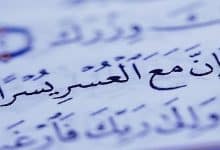 وِزْرَكَ
إِنَّ مَعَ ٱلْعُسْرِ يُسْرًا
وَإِلَىٰ رَبِّكَ فَٱرْغَب